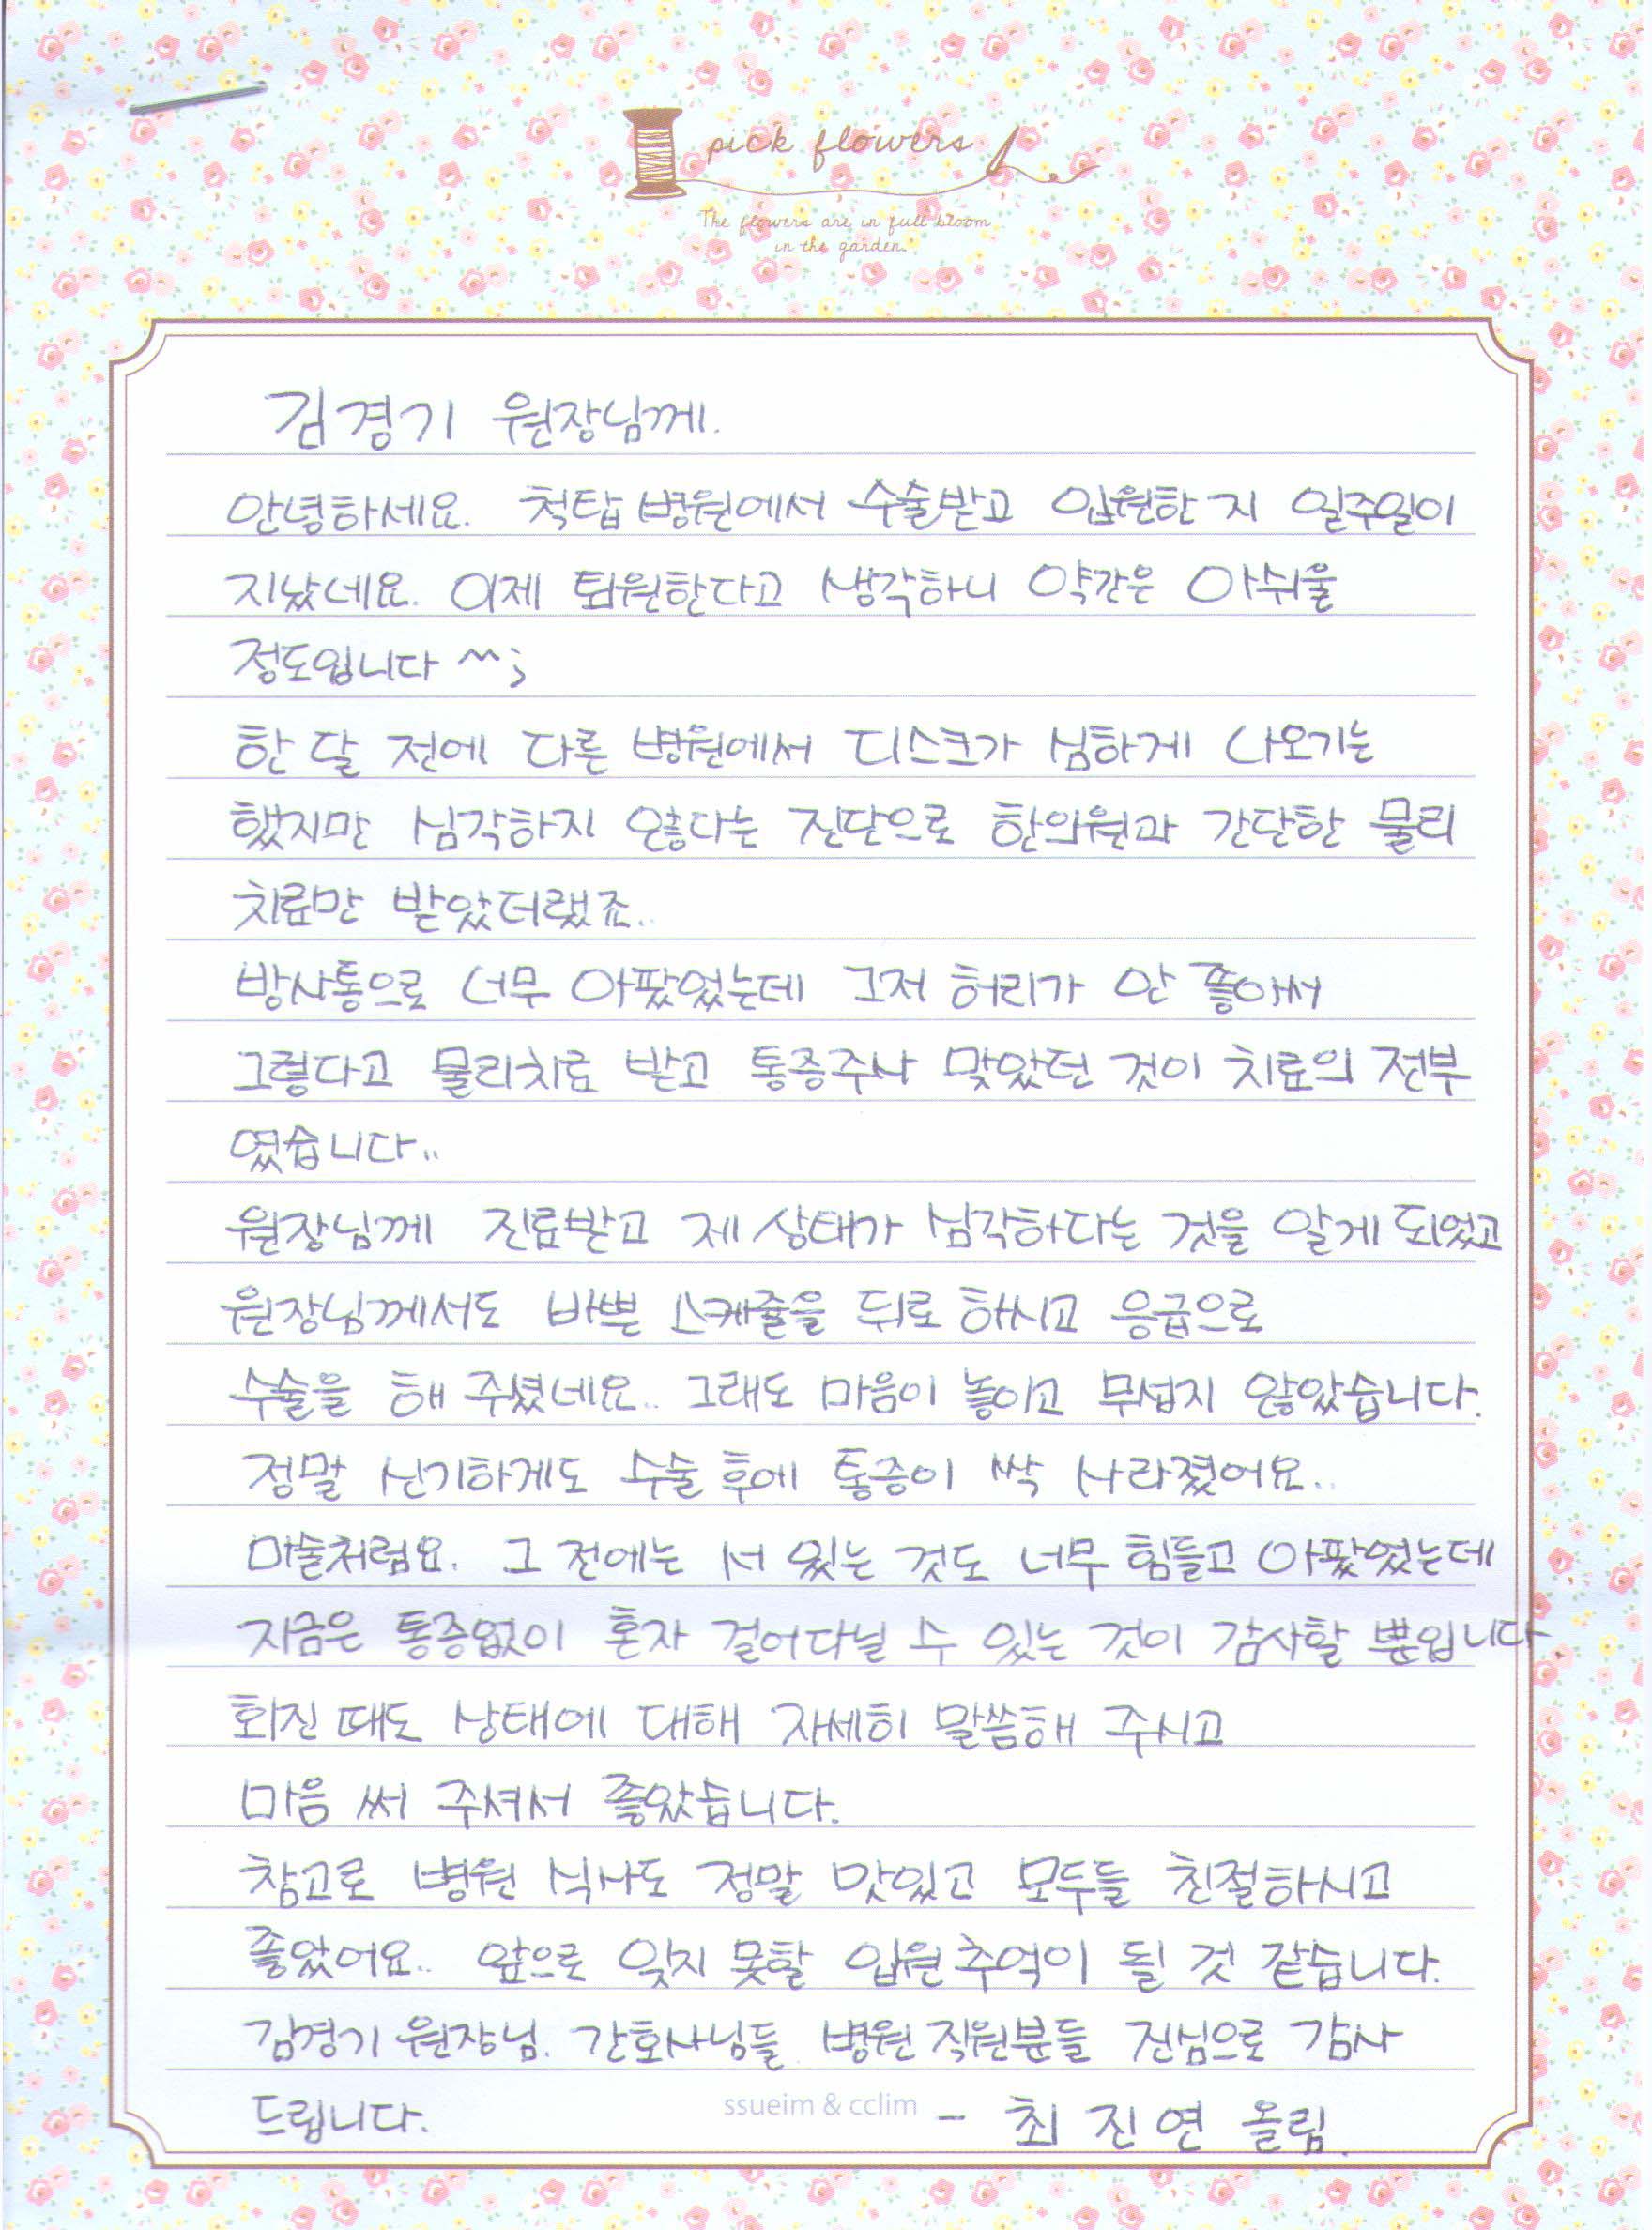 pick flowers
The flowers are in full bloom
in the garden.
김경기 원장님께.
안녕하세요. 척탑 병원에서 수술받고 입원한 지 일주일이
지났네요. 이제 퇴원한다고 생각하니 약간은 아쉬울
정도입니다 ^^;
한 달 전에 다른 병원에서 디스크가 심하게 나오기는
했지만 심각하지 않다는 진단으로 한의원과 간단한 물리
치료만 받았더랬죠..
방사통으로 너무 아팠었는데 그저 허리가 안 좋아서
그렇다고 물리치료 받고 통증주사 맞았던 것이 치료의 전부
였습니다..
원장님께 진료받고 제 상태가 심각하다는 것을 알게 되었고
원장님께서도 바쁜 스케쥴을 뒤로 하시고 응급으로
수술을 해 주셨네요.. 그래도 마음이 놓이고 무섭지 않았습니다.
정말 신기하게도 수술 후에 통증이 싹 사라졌어요..
마술처럼요. 그 전에는 서 있는 것도 너무 힘들고 아팠었는데
지금은 통증없이 혼자 걸어다닐 수 있는 것이 감사할 뿐입니다
회진 때도 상태에 대해 자세히 말씀해 주시고
마음 써 주셔서 좋았습니다.
참고로 병원 식사도 정말 맛있고 모두들 친절하시고
좋았어요.. 앞으로 잊지 못할 입원 추억이 될 것 같습니다.
김경기 원장님. 간호사님들 병원 직원분들 진심으로 감사
드립니다.
ssueim & cclim
- 최 진 연 올림.